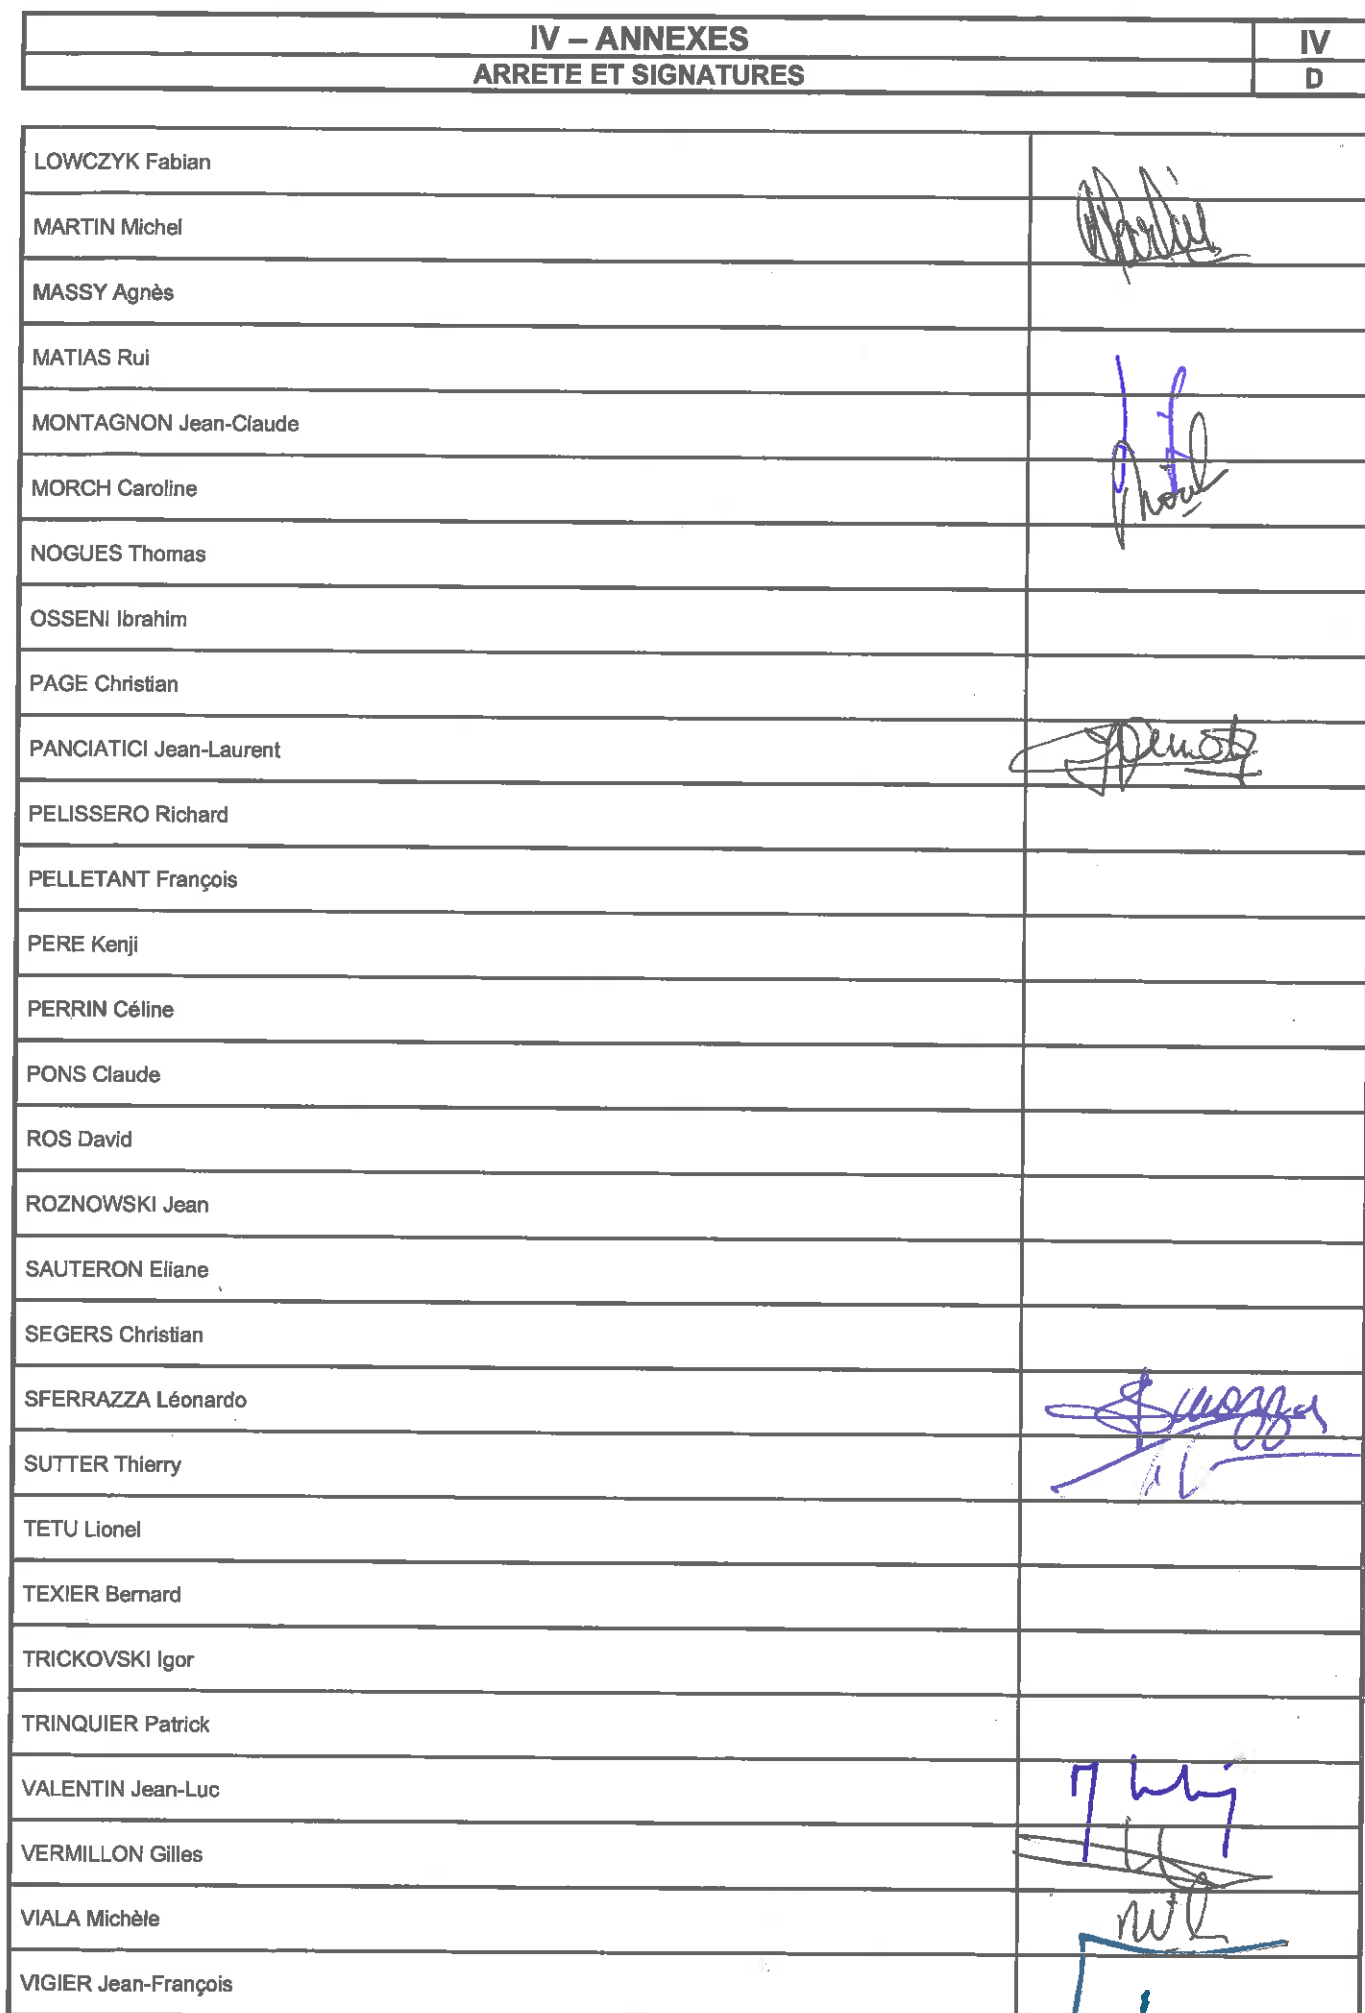 IV – ANNEXES
IV
ARRETE ET SIGNATURES
D
LOWCZYK Fabian
MARTIN Michel
MASSY Agnès
MATIAS Rui
MONTAGNON Jean-Claude
MORCH Caroline
NOGUES Thomas
OSSENI Ibrahim
PAGE Christian
PANCIATICI Jean-Laurent
PELISSERO Richard
PELLETANT François
PERE Kenji
PERRIN Céline
PONS Claude
ROS David
ROZNOWSKI Jean
SAUTERON Eliane
SEGERS Christian
SFERRAZZA Léonardo
SUTTER Thierry
TETU Lionel
TEXIER Bernard
TRICKOVSKI Igor
TRINQUIER Patrick
VALENTIN Jean-Luc
VERMILLON Gilles
VIALA Michèle
VIGIER Jean-François